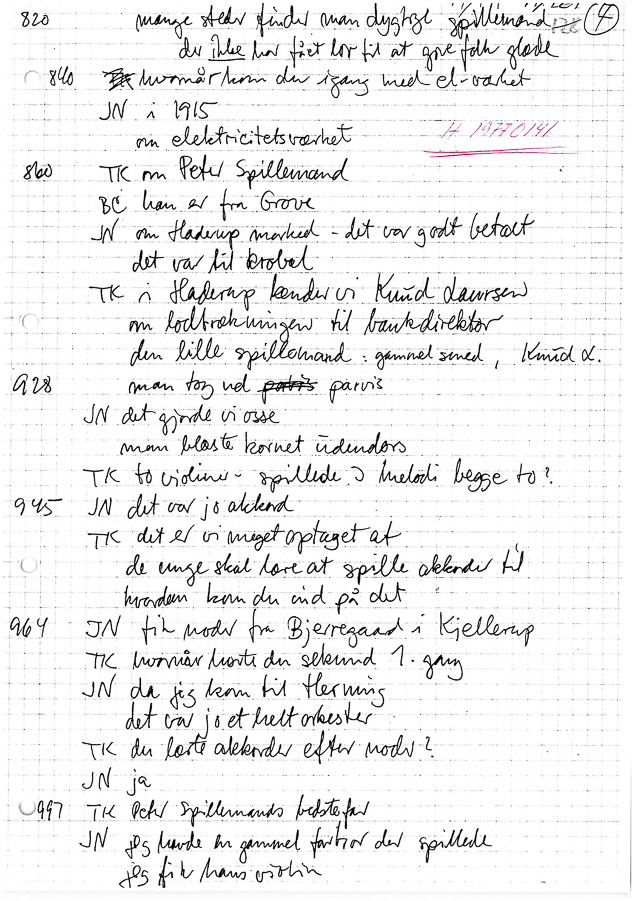 820 mange steder finder man dygtige spillemænd 4
der ikke har fået lov til at gøre folk glade
840 hvornår kom du igang med el-værket
JN i 1915
om elektricitetsværket
H 19770141
860 TK om Peter Spillemand
BC han er fra Grove
JN om Haderup marked - det var godt betalt
det var til
TK i Haderup kender vi Knud Laursen
om lodtrækningen til bankdirektør
den lille spillemand : gammel smed, Knud L.
928 man tog ud parvis
JN det gjorde vi osse
man blæste kornet udendørs
TK to violiner - spillede melodi begge to?
945 JN det var jo akkord
TK det er vi meget optaget af
de unge skal lære at spille akkorder til
hvordan kom du ind på det
964 JN fik noder fra Bjerregaard i Kjellerup
TK hvornår hørte du sekund 1. gang
JN da jeg kom til Herning
det var jo et helt orkester
TK du lærte akkorder efter noder?
JN ja
997 TK Peter Spillemands bedstefar
JN jeg havde en gammel farbror der spillede
jeg fik hans violin